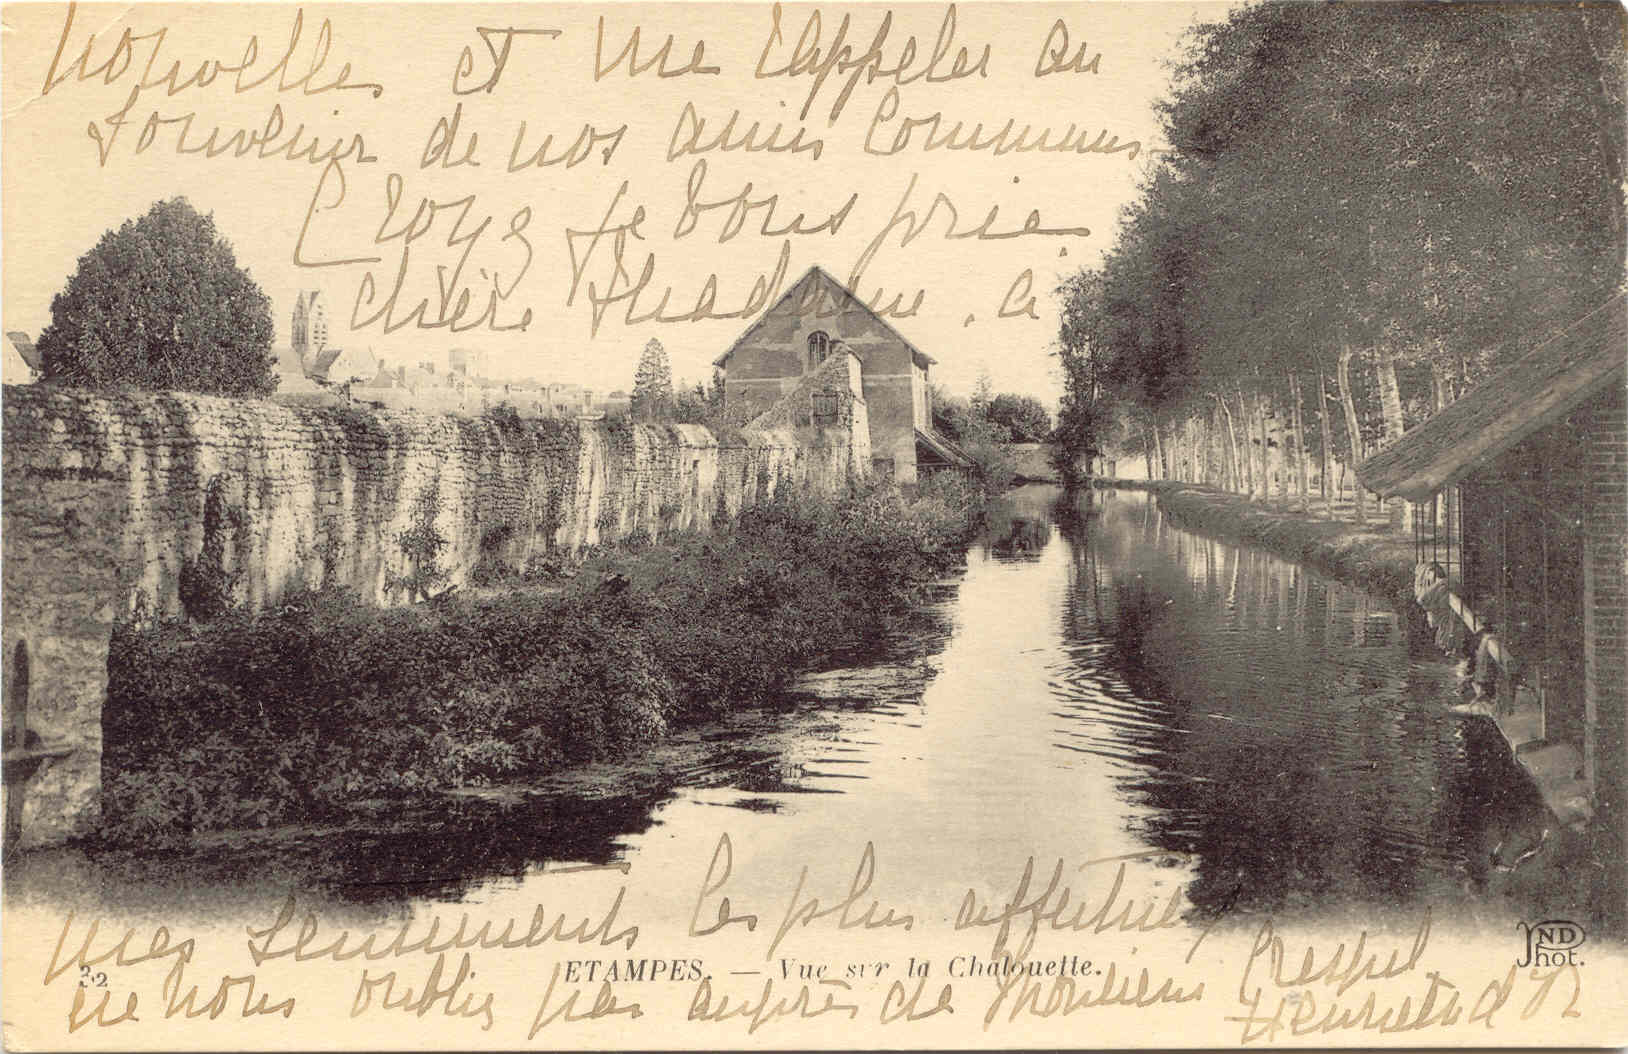 nouvelles et me rappeler au
souvenir de nos amis communs
Croyez je vous prie
chère Madame, à
mes sentiments les plus affectueux
ne nous oubliez pas auprès de Monsieur Crespel
Henriette d
32 ETAMPES. — Vue sur la Chalouette.
ND Phot.